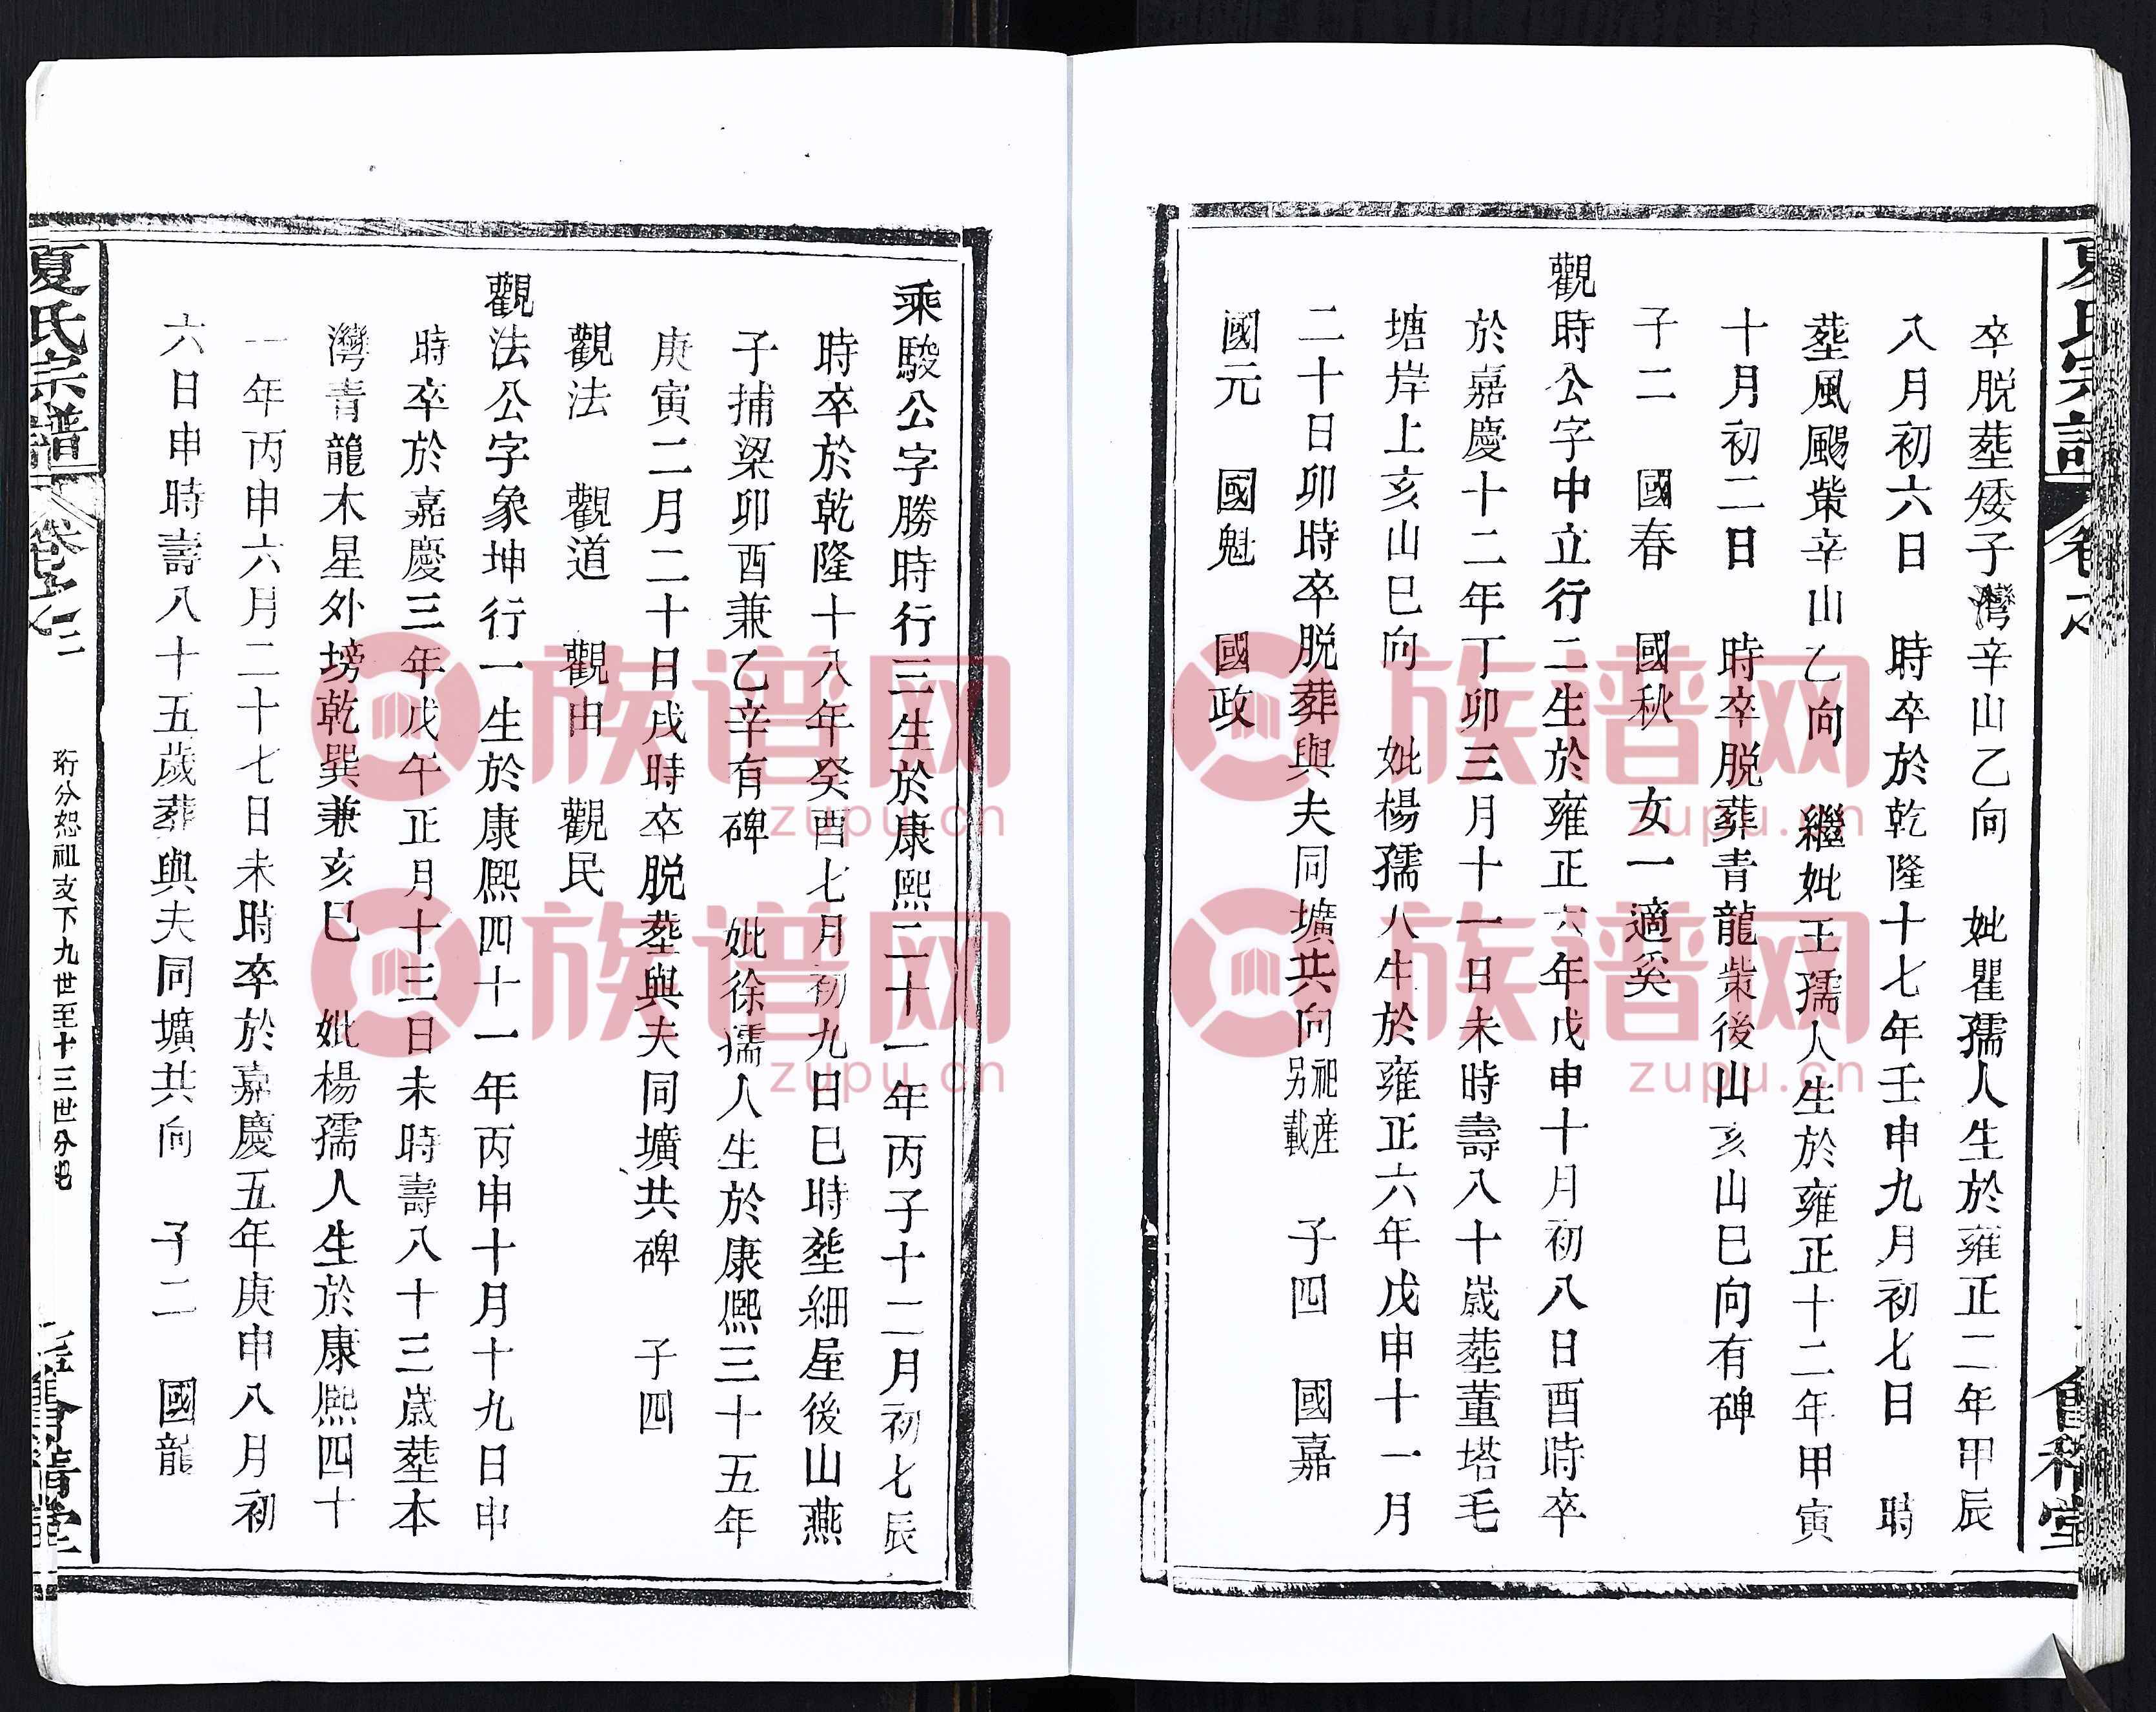 夏氏宗譜
卒脱塟矮子灣辛山乙向　妣瞿孺人生於雍正二年甲辰
八月初六日　時卒於乾隆十七年壬申九月初七日　時
塟風颺柴辛山乙向　繼妣王孺人生於雍正十二年甲寅
十月初二日　時卒脱葬青龍柴後山亥山巳向有碑
子二　國春　國秋　女一適奚
觀時公字中立行二生於雍正六年戊申十月初八日酉時卒
於嘉慶十二年丁卯三月十一日未時壽八十歲塟董塔毛
塘岸上亥山巳向　妣楊孺人生於雍正六年戊申十一月
二十日卯時卒脱葬與夫同壙共向祀産另載　子四　國嘉
國元　國魁　國政
乘駿公字勝時行三生於康熙三十一年丙子十二月初七辰
時卒於乾隆十八年癸酉七月初九日巳時塟細屋後山燕
子捕梁卯酉兼乙辛有碑　妣徐孺人生於康熙三十五年
庚寅二月二十日戌時卒脱塟與夫同壙共碑　子四
觀法　觀道　觀由　觀民
觀法公字象坤行一生於康熙四十一年丙申十月十九日申
時卒於嘉慶三年戊午正月十三日未時壽八十三歲塟本
灣青龍木星外塝乾巽兼亥巳　妣楊孺人生於康熙四十
一年丙申六月二十七日未時卒於嘉慶五年庚申八月初
六日申時壽八十五歲葬與夫同壙共向　子二　國龍
夏氏宗譜
珩分恕祖支下九世至十三世分
族谱网
zupu.cn
族谱网
zupu.cn
族谱网
zupu.cn
族谱网
zupu.cn